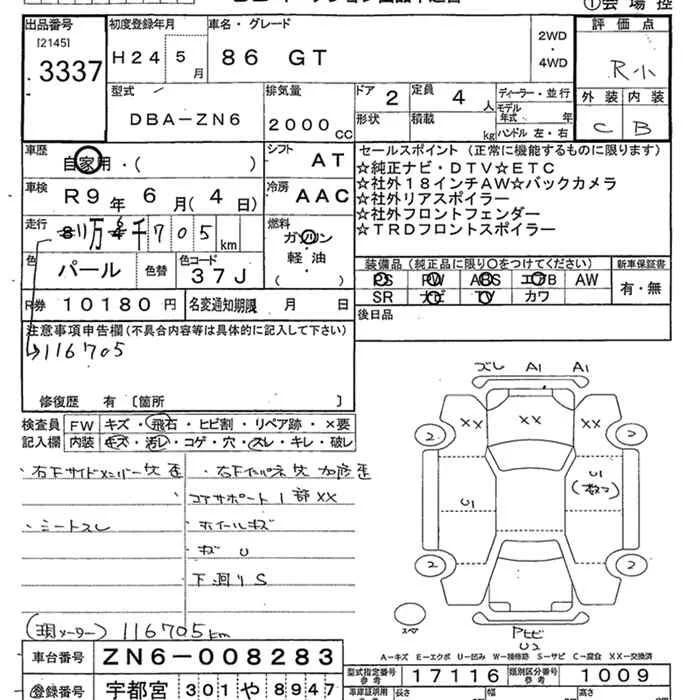 出品番号 初度登録年月 車名・グレード ①会場控
[2145]
3337
H24 5月
86 GT
2WD
・
4WD
評価点
R小
型式 排気量 ドア 2 定員 4人 ディーラー・並行
DBA-ZN6 2000cc
形状 積載 kg
モデル年式 年
ハンドル 左・右
外装 内装
C B
車歴 自家用・( )
シフト AT
車検 R9年6月(4日)
冷房 AAC
走行 11万6千705km
燃料 ガソリン
軽油
( )
色 パール 色替 色コード 37J
R券 10180円 名変通知期限 月 日
セールスポイント(正常に機能するものに限ります)
☆純正ナビ・DTV☆ETC
☆社外18インチAW☆バックカメラ
☆社外リアスポイラー
☆社外フロントフェンダー
☆TRDフロントスポイラー
装備品(純正品に限り○をつけてください) 新車保証書
PS PW ABS エアB AW 有・無
SR ナビ TV カワ
後日品
注意事項申告欄(不具合内容等は具体的に記入して下さい)
116705
修復歴 有〔箇所 〕
検査員 FW キズ・飛石・ヒビ割・リペア跡・×要
記入欄 内装 キズ・汚レ・コゲ・穴・スレ・キレ・破レ
・右Fサイドメンバー
・コアサポート1部XX
・シートスレ ・ホイールキズ
・キズ U
下廻りS
(現メーター) 116705km
ズレ A1 A1
XX XX XX
2 2
U1 U1
2 2
スペア
U2
A-キズ E-エクボ U-凹み W-補修跡 S-サビ C-腐食 XX-交換済
車台番号 ZN6-008283
型式指定番号 参考 17116 類別区分番号 参考 1009
登録番号 宇都宮 301 や 8947
長さ 幅 高さ